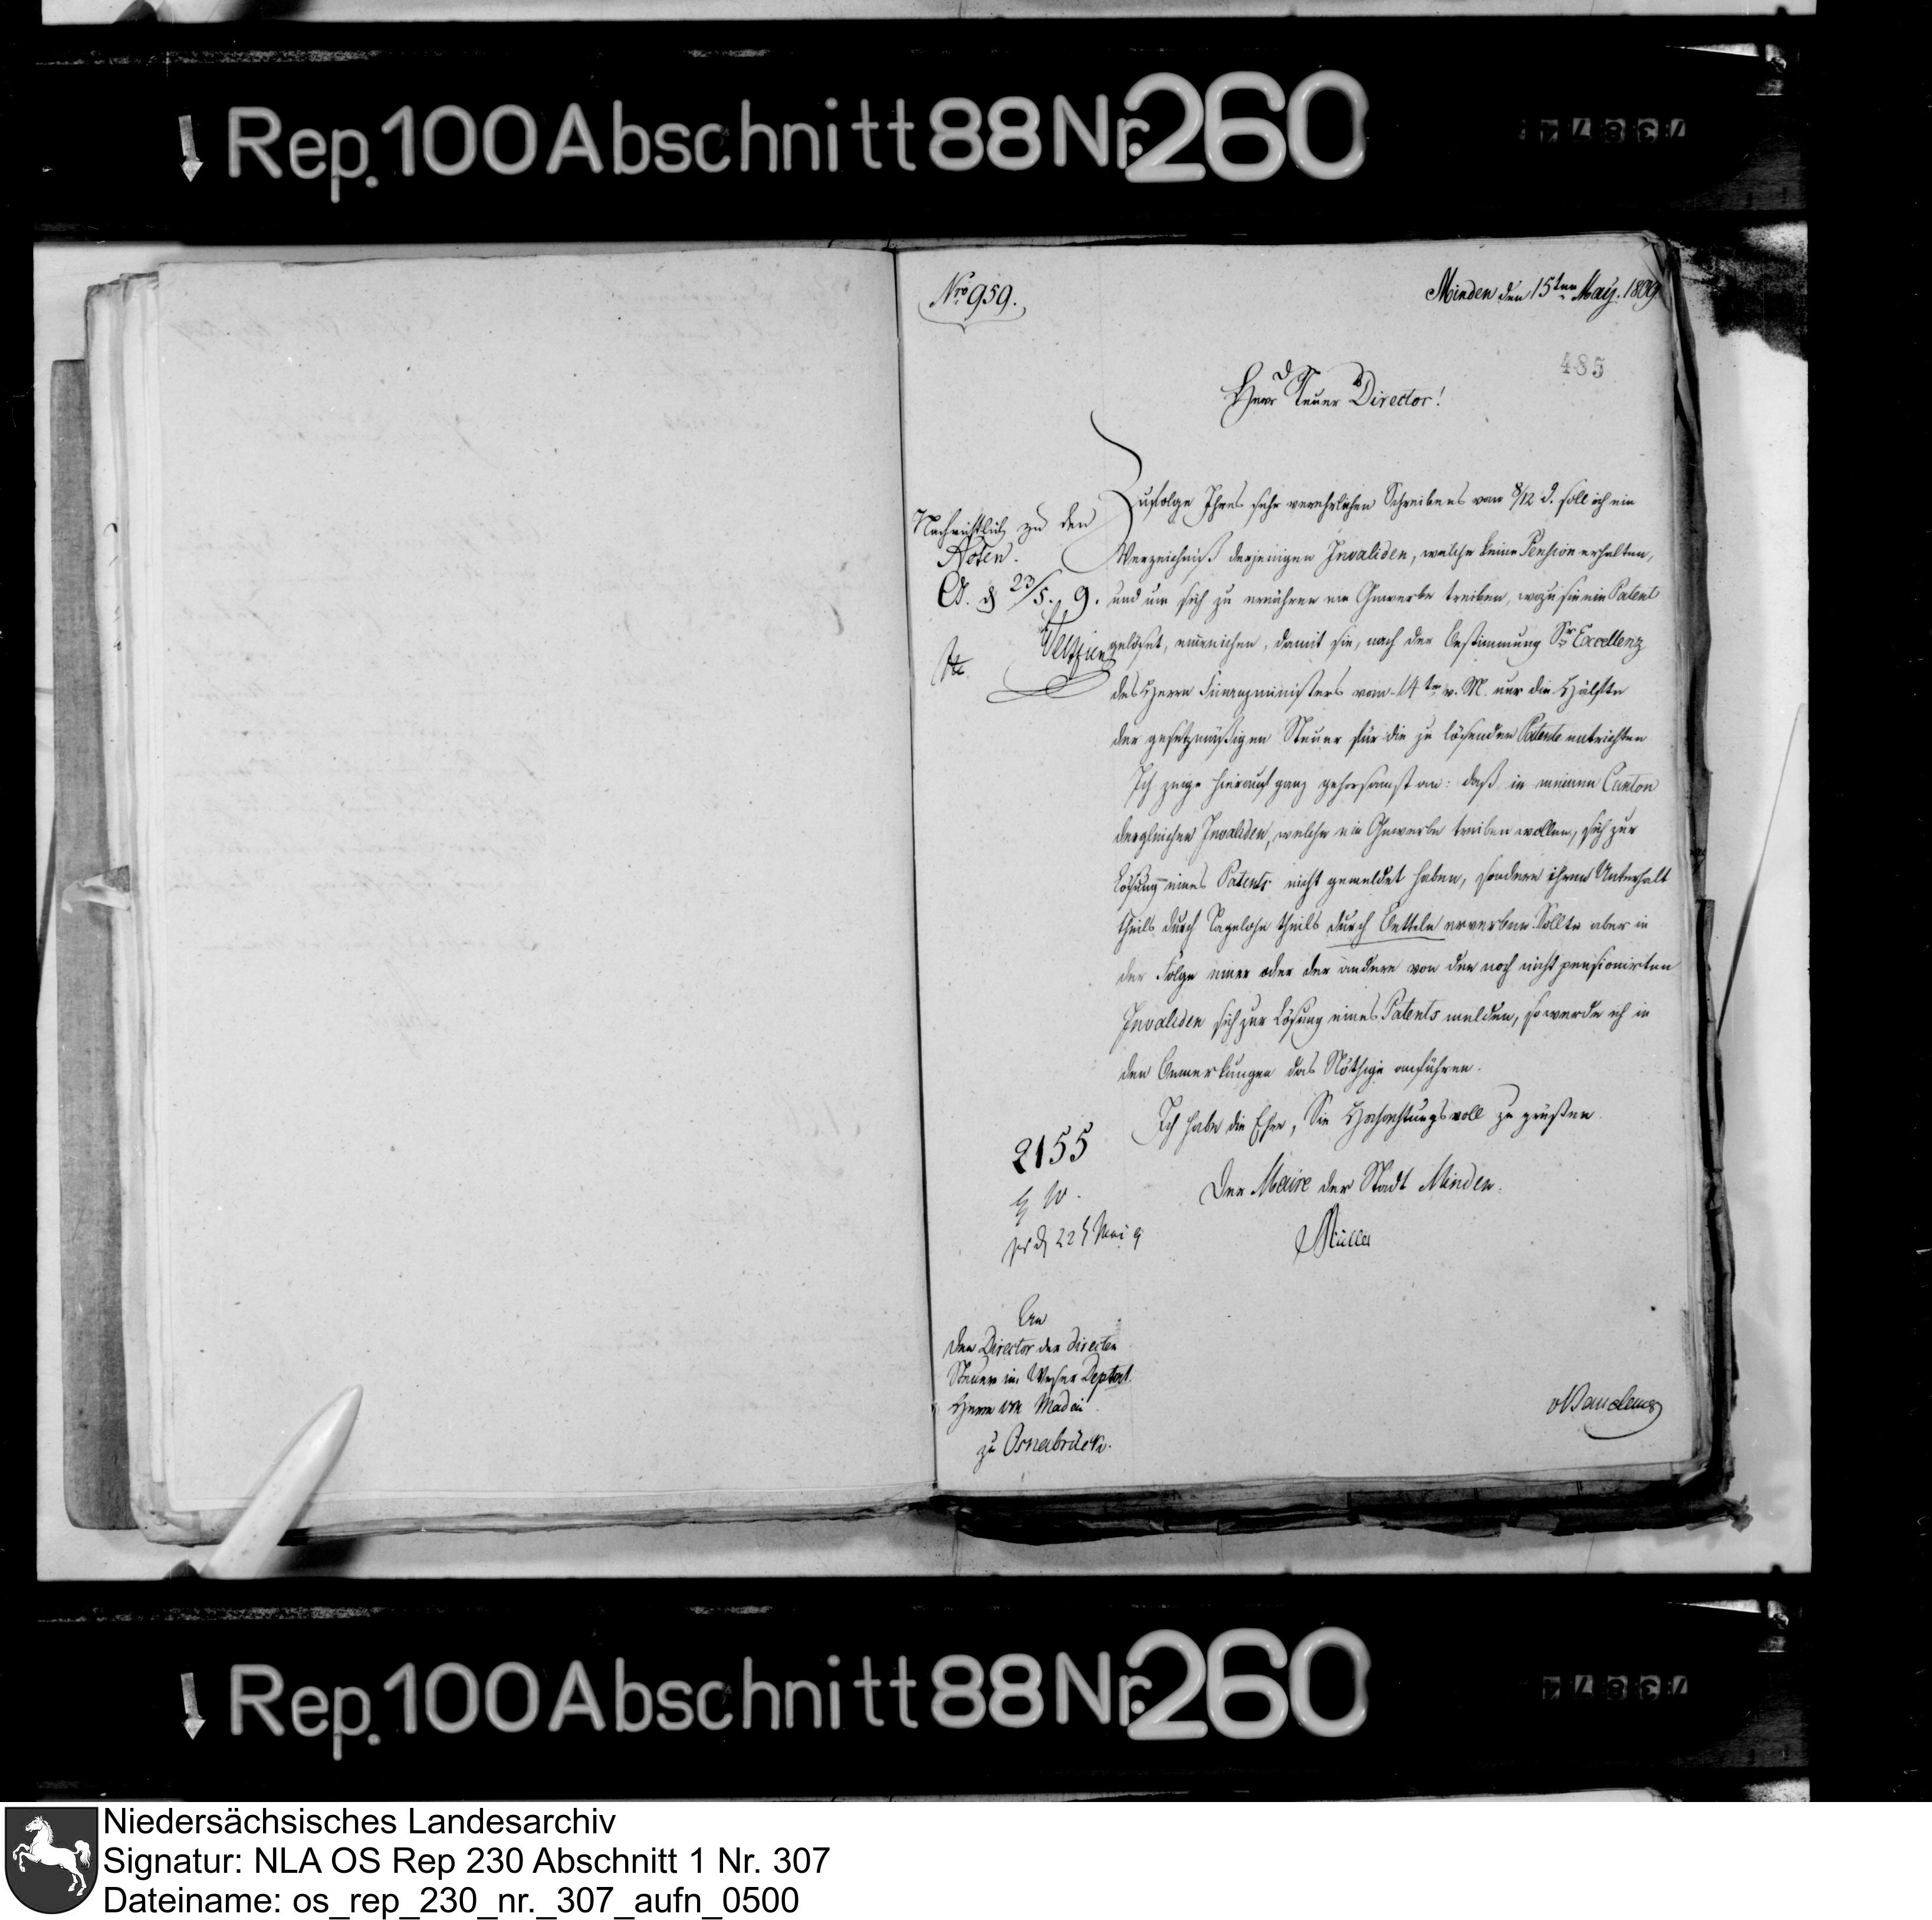 Rep. 100 Abschnitt 88 Nr. 260
Nro 959.
Minden den 15ten May. 1809
485
Herr Steuer Director!
Zufolge Ihres sehr verehrlichen Schreibens vom 8/12 d. soll ich ein
Verzeichniß derjenigen Invaliden, welche keine Pension erhalten,
und um sich zu ernähren ein Gewerbe treiben, wozu sie ein Patent
gelöset, einreichen, damit sie, nach der Bestimmung Sr Excellenz
des Herrn Finanzministers vom 14ten v. M. nur die Hälfte
der gesetzmäßigen Steuer für die zu lösenden Patente entrichten
Ich zeige hierauf ganz gehorsamst an: daß in meinem Canton
dergleichen Invaliden, welche ein Gewerbe treiben wollen, sich zur
Lösung eines Patents nicht gemeldet haben, sondern ihren Unterhalt
theils durch Tagelohn theils durch Betteln erwerben. Sollte aber in
der Folge einer oder der andere von den noch nicht pensionirten
Invaliden sich zur Lösung eines Patents melden, so werde ich in
den Anmerkungen das Nöthige anführen.
Ich habe die Ehre, Sie Hochachtungsvoll zu grüßen.
Der Maire der Stadt Minden.
Müller
Nachrichtlich zu den
Acten.
O. d 23/5. 9.
2155
pr d 22 t Mai 9
An
den Director der directen
Steuern im Weser Deptmt.
Herrn von
zu Osnabrück.
Rep. 100 Abschnitt 88 Nr. 260
Niedersächsisches Landesarchiv
Signatur: NLA OS Rep 230 Abschnitt 1 Nr. 307
Dateiname: os_rep_230_nr._307_aufn_0500